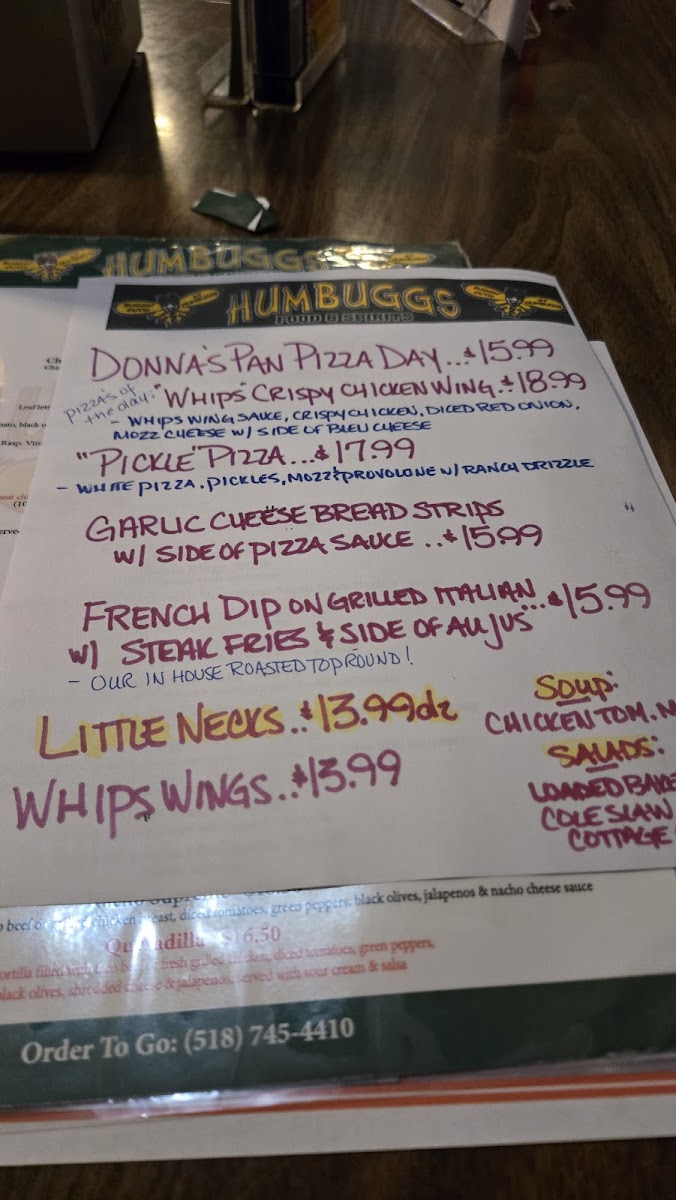 HUMBUGGS
HUMBUGGS
FOOD & SPIRITS
DONNA'S PAN PIZZA DAY...$15.99
PIZZA'S of the day:
"WHIPS" CRISPY CHICKEN WING.$18.99
- WHIPS WING SAUCE, CRISPY CHICKEN, DICED RED ONION,
MOZZ CHEESE W/ SIDE OF BLEU CHEESE
"PICKLE" PIZZA...$17.99
- WHITE PIZZA, PICKLES, MOZZ & PROVOLONE W/ RANCH DRIZZLE
GARLIC CHEESE BREAD STRIPS
W/ SIDE OF PIZZA SAUCE ..$15.99
FRENCH DIP ON GRILLED ITALIAN...$15.99
W/ STEAK FRIES & SIDE OF AU JUS
- OUR IN HOUSE ROASTED TOP ROUND!
LITTLE NECKS..$13.99dz
WHIPS WINGS..$13.99
SOUP:
CHICKEN TOM.
SALADS:
LOADED BAKE
COLE SLAW
COTTAGE
chicken breast, diced tomatoes, green peppers, black olives, jalapenos & nacho cheese sauce
$16.50
diced tomatoes, green peppers,
black olives, shredded cheese & jalapenos, served with sour cream & salsa
Order To Go: (518) 745-4410